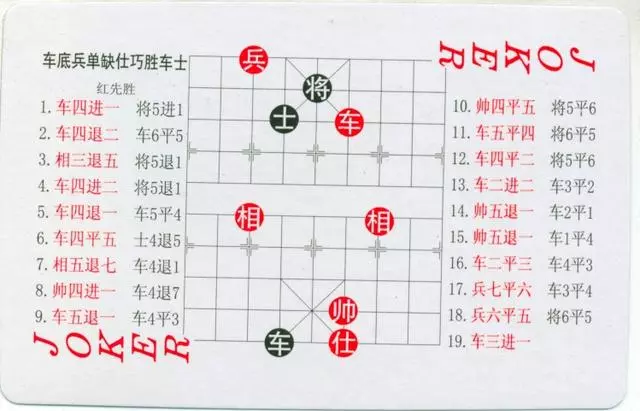 车底兵单缺仕巧胜车士
红先胜
1. 车四进一 将5进1
2. 车四退二 车6平5
3. 相三退五 将5退1
4. 车四进二 将5退1
5. 车四退一 车5平4
6. 车四平五 士4退5
7. 相五退七 车4退1
8. 帅四进一 车4退7
9. 车五退一 车4平3
JOKER
兵
将
士
车
相 相
帅
车 仕
JOKER
10. 帅四平五 将5平6
11. 车五平四 将6平5
12. 车四平二 将5平6
13. 车二进二 车3平2
14. 帅五退一 车2平1
15. 帅五退一 车1平4
16. 车二平三 车4平3
17. 兵七平六 车3平4
18. 兵六平五 将6平5
19. 车三进一